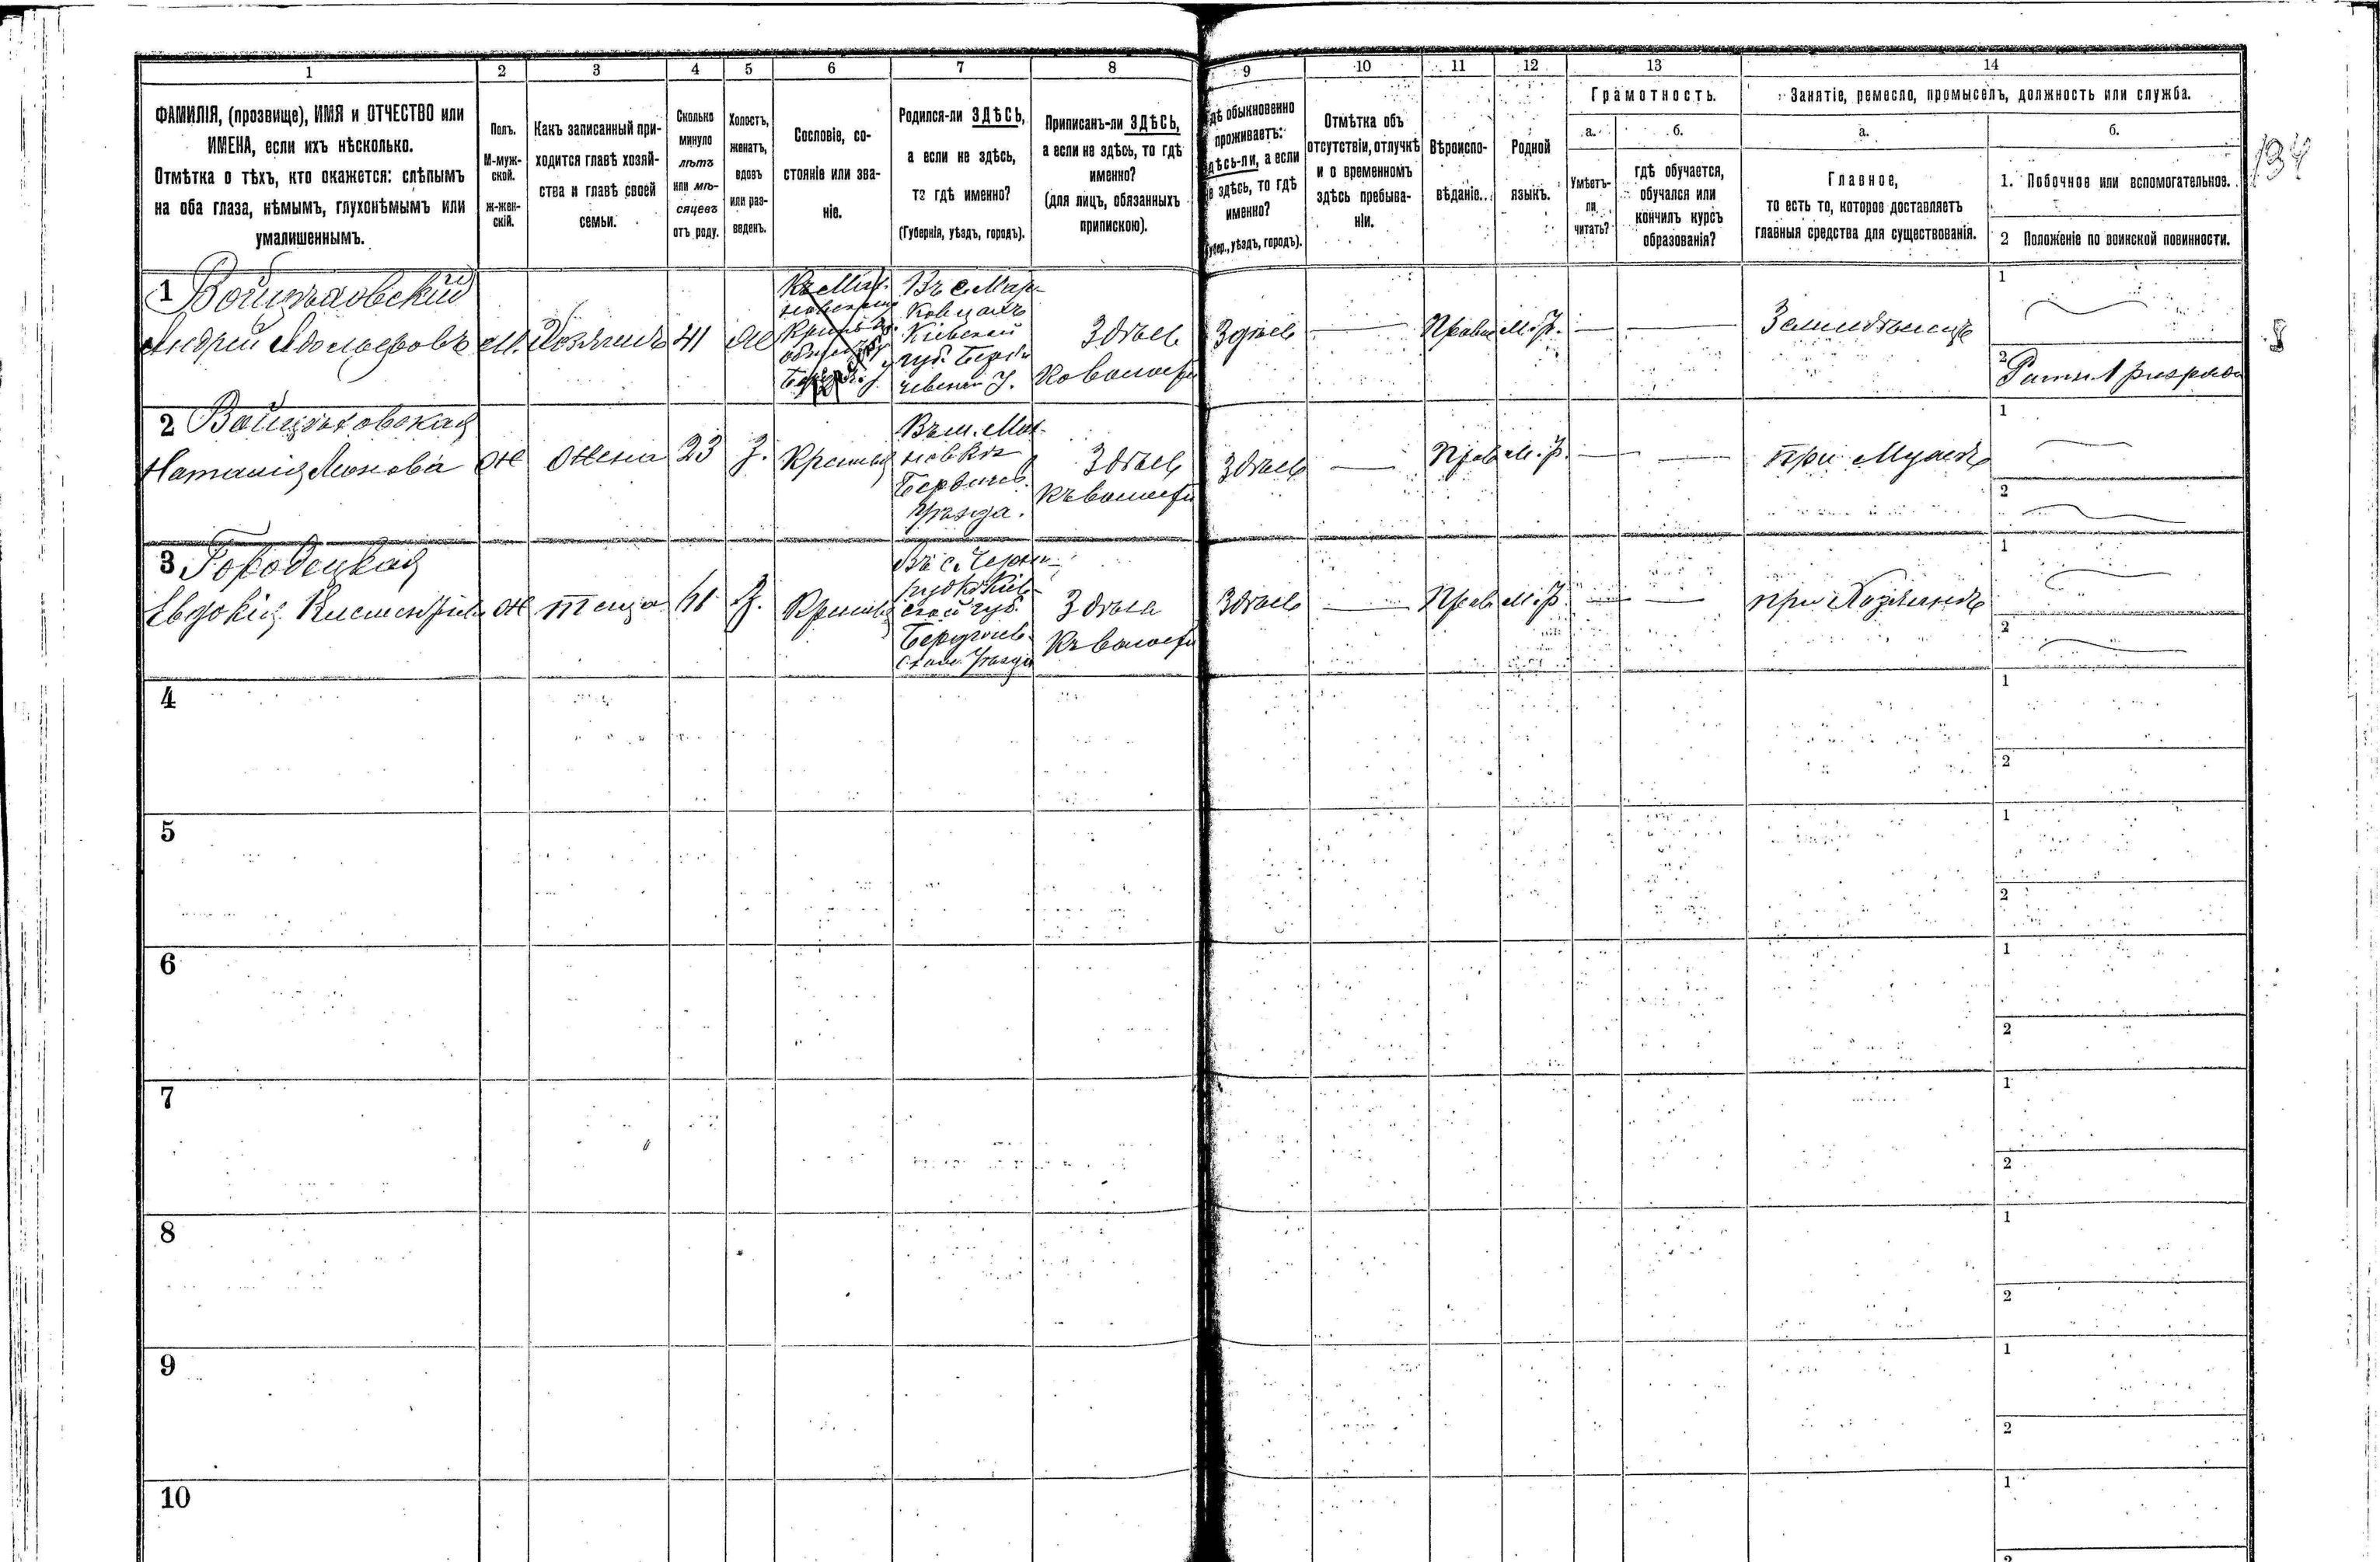 1
2
3
4
5
6
7
8
9
10
11
12
13
14
134
ФАМИЛІЯ, (прозвище), ИМЯ и ОТЧЕСТВО или
ИМЕНА, если ихъ нѣсколько.
Отмѣтка о тѣхъ, кто окажется: слѣпымъ
на оба глаза, нѣмымъ, глухонѣмымъ или
умалишеннымъ.
Полъ.
М-муж-
ской.
ж-жен-
скій.
Какъ записанный при-
ходится главѣ хозяй-
ства и главѣ своей
семьи.
Сколько
минуло
лѣтъ
или мѣ-
сяцевъ
отъ роду.
Холостъ,
женатъ,
вдовъ
или раз-
веденъ.
Сословіе, со-
стояніе или зва-
ніе.
Родился-ли ЗДѢСЬ,
а если не здѣсь,
то гдѣ именно?
(Губернія, уѣздъ, городъ).
Приписанъ-ли ЗДѢСЬ,
а если не здѣсь, то гдѣ
именно?
(для лицъ, обязанныхъ
припискою).
дѣ обыкновенно
проживаетъ:
здѣсь-ли, а если
не здѣсь, то гдѣ
именно?
(Губер., уѣздъ, городъ).
Отмѣтка объ
отсутствіи, отлучкѣ
и о временномъ
здѣсь пребыва-
ніи.
Вѣроиспо-
вѣданіе.
Родной
языкъ.
Грамотность.
а.
Умѣетъ-
ли
читать?
б.
гдѣ обучается,
обучался или
кончилъ курсъ
образованія?
Занятіе, ремесло, промыселъ, должность или служба.
а.
Главное,
то есть то, которое доставляетъ
главныя средства для существованія.
б.
1. Побочное или вспомогательное.
2 Положеніе по воинской повинности.
1 Войцѣховскій
Андрей Адольфовъ
М.
Хозяинъ
41
Ж
Кіевской
губ. Берди
чевскій У.
Здѣсь
Здѣсь
Правос
М.Р.
1
2
2 Войцѣховская
Наталія
Ж
Жена
23
З.
Бердичев.
Уѣзда.
Здѣсь
Къ волости
Здѣсь
Прав
М.Р.
При Мужѣ
1
2
3 Городецкая
Евдокія
Ж
теща
З.
Кіев-
ской губ.
Бердичев-
Уѣзда
Къ волости
Здѣсь
Прав
М.Р.
при Хозяинѣ
1
2
4
1
2
5
1
2
6
1
2
7
1
2
8
1
2
9
1
2
10
1
2